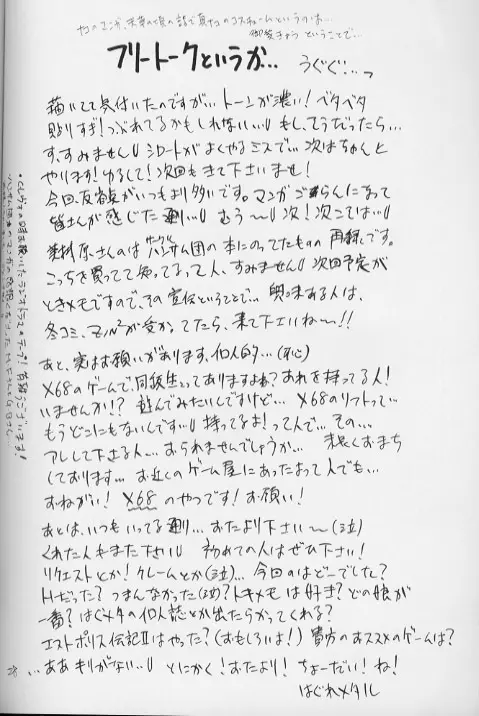 フリートークというか… うぐぐ…っ
描いてて気付いたのですが… トーンが濃い！ベタベタ
貼りすぎ！つぶれてるかもしれない… もし、そうだったら…
す、すみません シロートがよくやるミスで… 次はちゃんと
やります！ゆるして！次回もきて下さいませ！
今回、反省点がいつもより多いです。マンガ ごらんになって
皆さんが感じた通り… むぅ〜 次！次こそは…
さんのは ハンサム団の本にのってたものの 再録です。
こっちを買ってて知ってるって人、すみません 次回予定が
ときメモですので、その宣伝ということで… 興味ある人は、
冬コミ、 が受かってたら、来て下さいね〜!!
あと、実はお願いがあります、個人的…（死）
X68のゲームで、同級生ってありますよね？あれを持ってる人！
いませんか!? 遊んでみたいんですけど… X68のソフトって…
もうどこにもないんです… 持ってるよ！って人で… その…
アレして下さる人… おられませんでしょうか… 末長くおまち
しております… お近くのゲーム屋にあったよって人でも…
おねがい！ X68 のやつです！お願い！
あとは、いつもいってる通り… おたより下さい〜（泣）
くれた人もまた下さい 初めての人はぜひ下さい！
リクエストとか！クレームとか（泣）… 今回のはどーでした？
Hだった？つまんなかった（泣）？トキメモは好き？どの娘が
一番？はぐメタの個人誌とか出たらかってくれる？
エストポリス伝記Ⅱはやった？（おもしろいよ！）貴方のおススメのゲームは？
…ああ キリがない… とにかく！おたより！ちょーだい！ね！
はぐれメタル